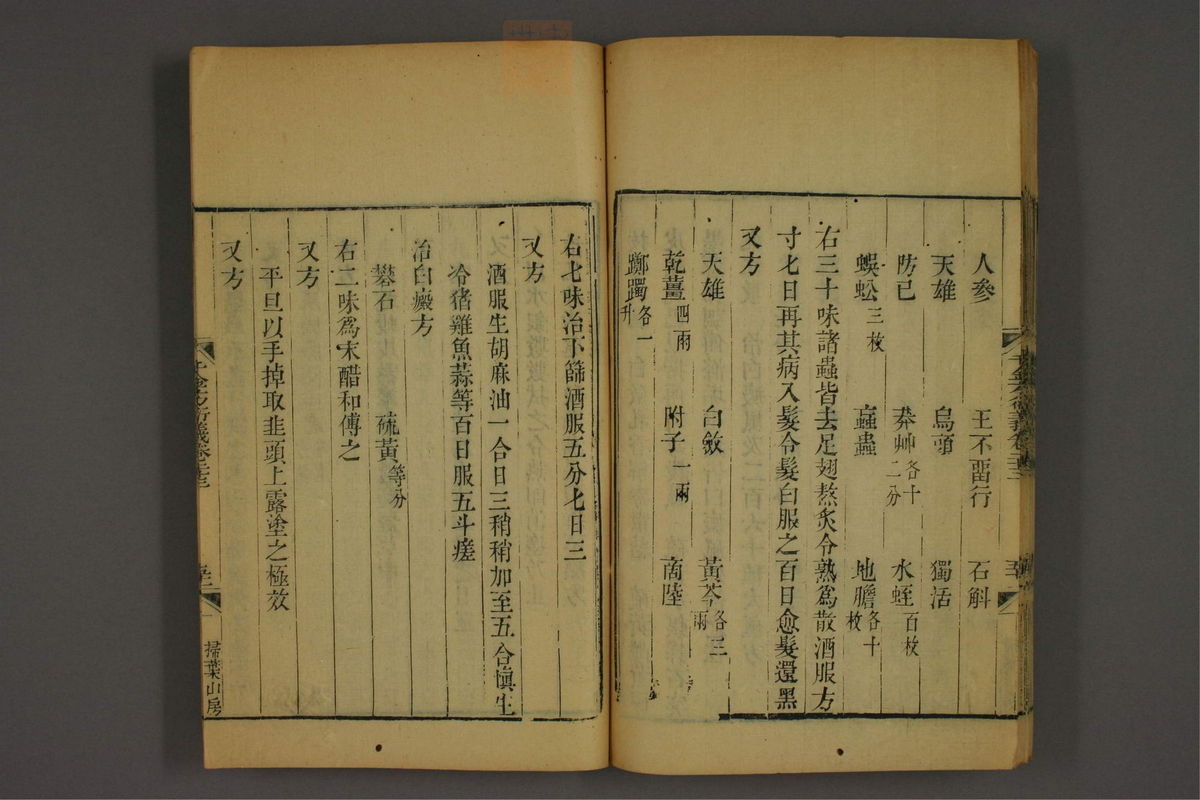 人參　王不畱行　石斛
天雄　烏頭　獨活
防己　莽艸各十二分　水蛭百枚
蜈蚣三枚　䗪蟲　地膽各十枚
右三十味諸蟲皆去足翅熬炙令熟爲散酒服方
寸七日再其病入髮令髮白服之百日愈髮還黑
又方
天雄　白斂　黃芩各三兩
乾薑四兩　附子一兩　商陸
躑躅各一升
右七味治下篩酒服五分七日三
又方
酒服生胡麻油一合日三稍稍加至五合愼生
冷猪雞魚蒜等百日服五斗瘥
治白癜方
礬石　硫黃等分
右二味爲末醋和傅之
又方
平旦以手掉取韭頭上露塗之極效
又方
千金方衍義卷
掃葉山房